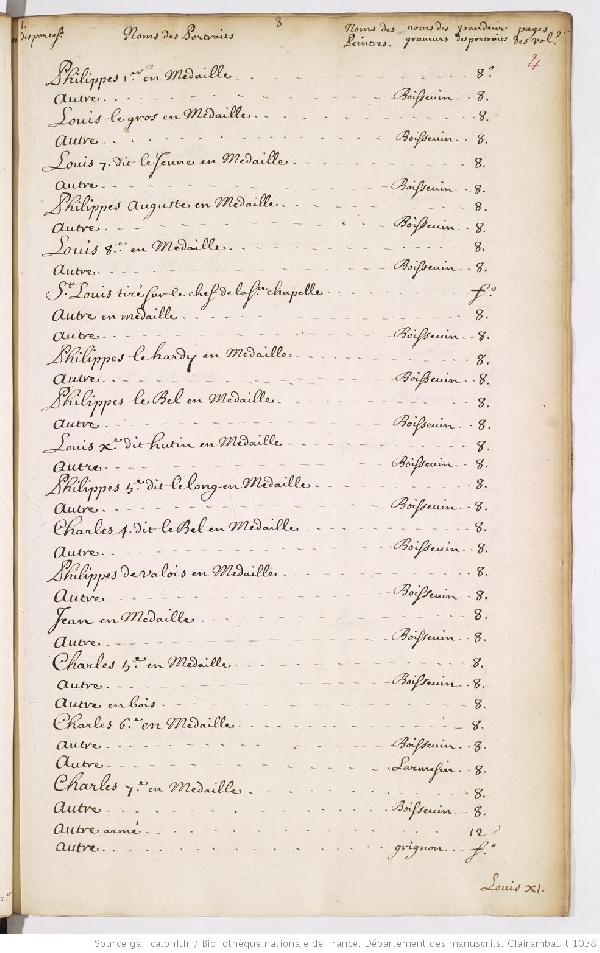 3
Noms des Portraits
Noms des Peintres.
noms des graveurs
grandeur des portraits
pages des vol.
4
Philippes 1er en Medaille 8º
Autre Boissevin 8.
Louis le gros en Medaille 8.
Autre Boissevin 8.
Louis 7. dit le Jeune en Medaille 8.
Autre Boissevin 8.
Philippes Auguste en Medaille 8.
Autre Boissevin 8.
Louis 8.e en Medaille 8.
Autre Boissevin 8.
St. Louis tiré sur le chef de la ste chapelle fº
Autre en medaille 8.
Autre Boissevin 8.
Philippes le hardy en Medaille 8.
Autre Boissevin 8.
Philippes le Bel en Medaille 8.
Autre Boissevin 8.
Louis X.e dit hutin en Medaille 8.
Autre Boissevin 8.
Philippes 5.e dit le long en Medaille 8.
Autre Boissevin 8.
Charles 4. dit le Bel en Medaille 8.
Autre Boissevin 8.
Philippes de valois en Medaille 8.
Autre Boissevin 8.
Jean en Medaille 8.
Autre Boissevin 8.
Charles 5.e en Medaille 8.
Autre Boissevin 8.
Autre en bois 8.
Charles 6.e en Medaille 8.
Autre Boissevin 8.
Autre Larmessin 8.
Charles 7.e en Medaille 8.
Autre Boissevin 8.
Autre armé 12
Autre grignon fº
Louis XI.
Source gallica.bnf.fr / Bibliothèque nationale de France. Département des manuscrits. Clairambault 1038